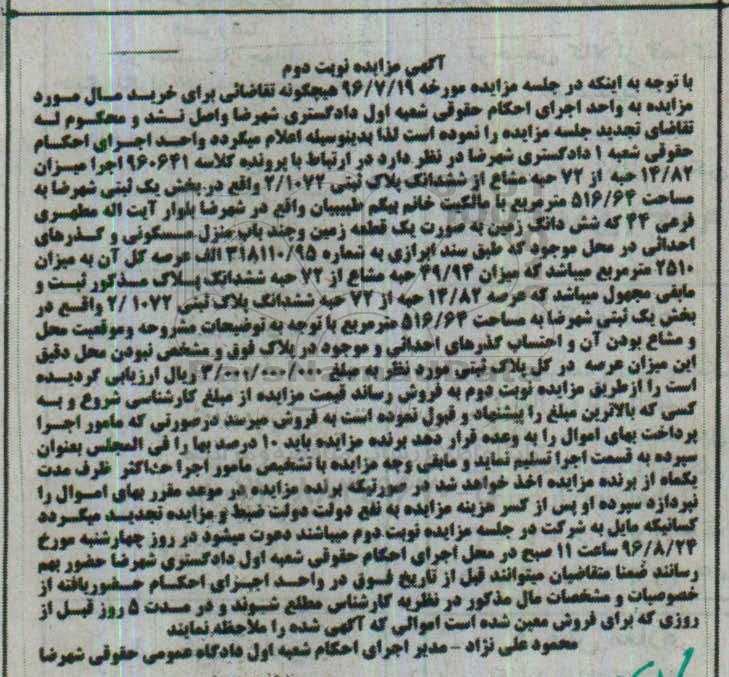 آگهی مزایده نوبت دوم
با توجه به اینکه در جلسه مزایده مورخه ۹۶/۷/۱۹ هیچگونه تقاضائی برای خرید مال مورد
مزایده به واحد اجرای احکام حقوقی شعبه اول دادگستری شهرضا واصل نشد و محکوم له
تقاضای تجدید جلسه مزایده را نموده است لذا بدینوسیله اعلام میگردد واحد اجرای احکام
حقوقی شعبه ۱ دادگستری شهرضا در نظر دارد در ارتباط با پرونده کلاسه ۹۶۰۶۴۱ اجرا میزان
۱۴/۸۲ حبه از ۷۲ حبه مشاع از ششدانگ پلاک ثبتی ۲/۱۰۷۲ واقع در بخش یک ثبتی شهرضا به
مساحت ۵۱۶/۶۴ مترمربع با مالکیت خانم بیگم طبیبیان واقع در شهرضا بلوار آیت اله مطهری
فرعی ۴۴ که شش دانگ زمین به صورت یک قطعه زمین وچند باب منزل مسکونی و گذرهای
احداثی در محل موجود که طبق سند ابرازی به شماره ۳۱۸۱۱۰/۹۵ الف عرصه کل آن به میزان
۲۵۱۰ مترمربع میباشد که میزان ۴۹/۹۴ حبه مشاع از ۷۲ حبه ششدانگ پلاک مذکور ثبت و
مابقی مجهول میباشد که عرصه ۱۴/۸۲ حبه از ۷۲ حبه ششدانگ پلاک ثبتی ۲/۱۰۷۲ واقع در
بخش یک ثبتی شهرضا به مساحت ۵۱۶/۶۴ مترمربع با توجه به توضیحات مشروحه وموقعیت محل
و مشاع بودن آن و احتساب گذرهای احداثی و موجود در پلاک فوق و مشخص نبودن محل دقیق
این میزان عرصه در کل پلاک ثبتی مورد نظر به مبلغ ۳/۰۰۰/۰۰۰/۰۰۰ ریال ارزیابی گردیده
است را ازطریق مزایده نوبت دوم به فروش رساند قیمت مزایده از مبلغ کارشناسی شروع و به
کسی که بالاترین مبلغ را پیشنهاد و قبول نموده است به فروش میرسد درصورتی که مامور اجرا
پرداخت بهای اموال را به وعده قرار دهد برنده مزایده باید ۱۰ درصد بها را فی المجلس بعنوان
سپرده به قسمت اجرا تسلیم نماید و مابقی وجه مزایده با تشخیص مامور اجرا حداکثر ظرف مدت
یکماه از برنده مزایده اخذ خواهد شد در صورتیکه برنده مزایده در موعد مقرر بهای اموال را
نپردازد سپرده او پس از کسر هزینه مزایده به نفع دولت دولت ضبط و مزایده تجدید میگردد
کسانیکه مایل به شرکت در جلسه مزایده نوبت دوم میباشند دعوت میشود در روز چهارشنبه مورخ
۹۶/۸/۲۴ ساعت ۱۱ صبح در محل اجرای احکام حقوقی شعبه اول دادگستری شهرضا حضور بهم
رسانند ضمنا متقاضیان میتوانند قبل از تاریخ فوق در واحد اجرای احکام حضوریافته از
خصوصیات و مشخصات مال مذکور در نظریه کارشناس مطلع شوند و در مدت ۵ روز قبل از
روزی که برای فروش معین شده است اموالی که آگهی شده را ملاحظه نمایند
محمود علی نژاد - مدیر اجرای احکام شعبه اول دادگاه عمومی حقوقی شهرضا